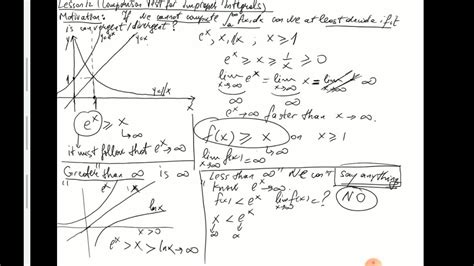 Lesson 12 (Comparison Test for Improper Integrals)
Motivation: If we cannot compute ∫ₐ^∞ f(x)dx can we at least decide if it
is convergent/divergent?
y=eˣ
y=x
eˣ, x, 1/x, x ≥ 1
eˣ ≥ x ≥ 1/x ≥ 0
lim x→∞ eˣ = lim x→∞ x = ∞
∞
∞
y=1/x
x
eˣ → ∞ faster than x → ∞.
eˣ ≥ x
↳ ∞
it must follow that eˣ → ∞
f(x) ≥ x on x ≥ 1
↳ ∞
lim x→∞ f(x) = ∞
"Greater" than ∞ is ∞
ln x
x > 0
eˣ > x > ln x → ∞
"Less than ∞" We can't say anything
Know eˣ → ∞.
f(x) < eˣ lim x→∞ f(x) = ?
NO
x < eˣ
∞ ∞